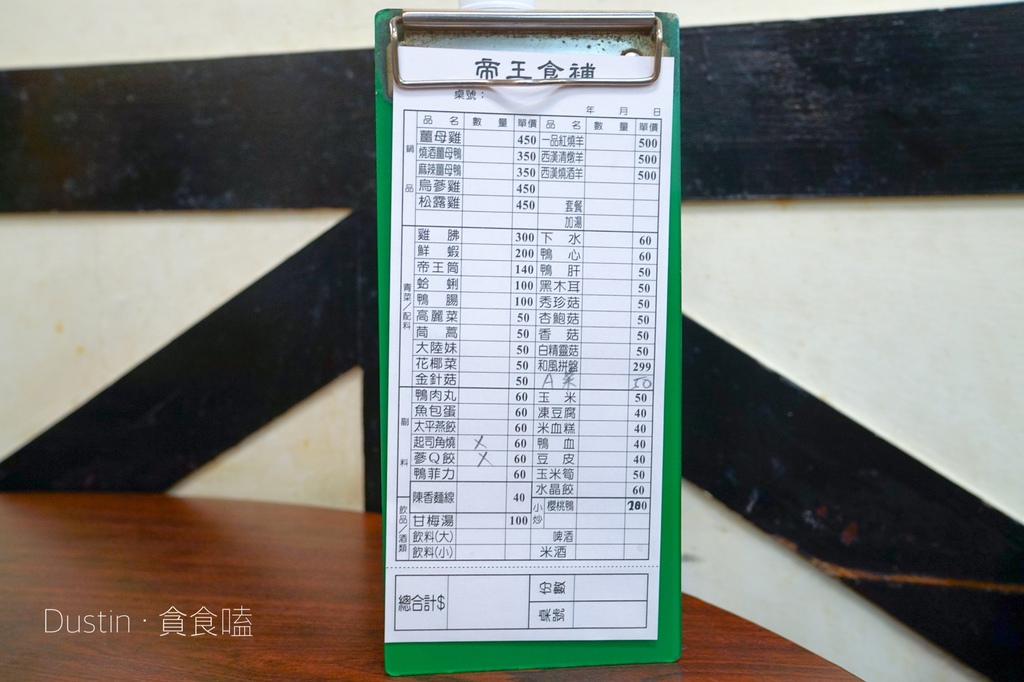 帝王食補
桌號：
年 月 日
品 名 數 量 單價 品 名 數 量 單價
鍋品
薑母雞 450 一品紅燒羊 500
燒酒薑母鴨 350 西漢清燉羊 500
麻辣薑母鴨 350 西漢燒酒羊 500
烏蔘雞 450
松露雞 450 套餐
加湯
青菜/配料
雞 胇 300 下 水 60
鮮 蝦 200 鴨 心 60
帝王筒 140 鴨 肝 50
蛤 蜊 100 黑木耳 50
鴨 腸 100 秀珍菇 50
高麗菜 50 杏鮑菇 50
茼 蒿 50 香 菇 50
大陸妹 50 白精靈菇 50
花椰菜 50 和風拼盤 299
金針菇 50 A菜 50
副料
鴨肉丸 60 玉 米 50
魚包蛋 60 凍豆腐 40
太平燕餃 60 米血糕 40
起司角燒 X 60 鴨 血 40
蔘Q餃 X 60 豆 皮 40
鴨菲力 60 玉米筍 50
水晶餃 60
陳香麵線 40 小炒 櫻桃鴨
飲品/酒類
甘梅湯 100
飲料(大) 啤酒
飲料(小) 米酒
總合計$
Dustin · 貪食嗑